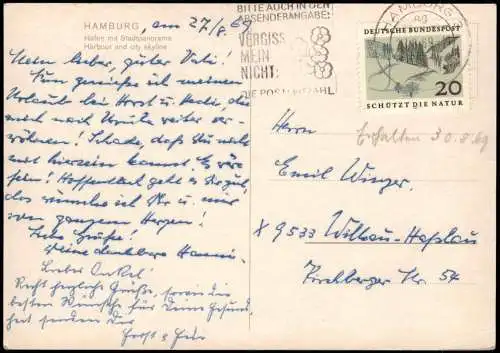 HAMBURG, am 27/8.69
Hafen mit Stadtpanorama
Harbour and city skyline
Mein lieber, guter Vati!
Nun genieße ich meinen
Urlaub bei Horst u. Hedi, die
mich nach weiter ver-
wöhnen! Schade, daß Du nicht
mit hierzein kannst. Es wäre
fein! Hoffentlich geht es Dir gut,
das wünsche ich Dir u. mir
von ganzem Herzen!
Liebe Grüße!
Deine dankbare Hanni.
Lieber Onkel!
Recht herzliche Grüße, sowie die
besten Wünsche für Deine Gesund-
heit senden Dir
Horst &
BITTE AUCH IN DER
ABSENDERANGABE:
VERGISS
MEIN
NICHT:
DIE POSTLEITZAHL
HAMBURG
DEUTSCHE BUNDESPOST
20
SCHÜTZT DIE NATUR
Erhalten 30.8.69
Herrn
Emil Winger.
X 9533 Wilkau-Haßlau
Kirchberger Str. 54